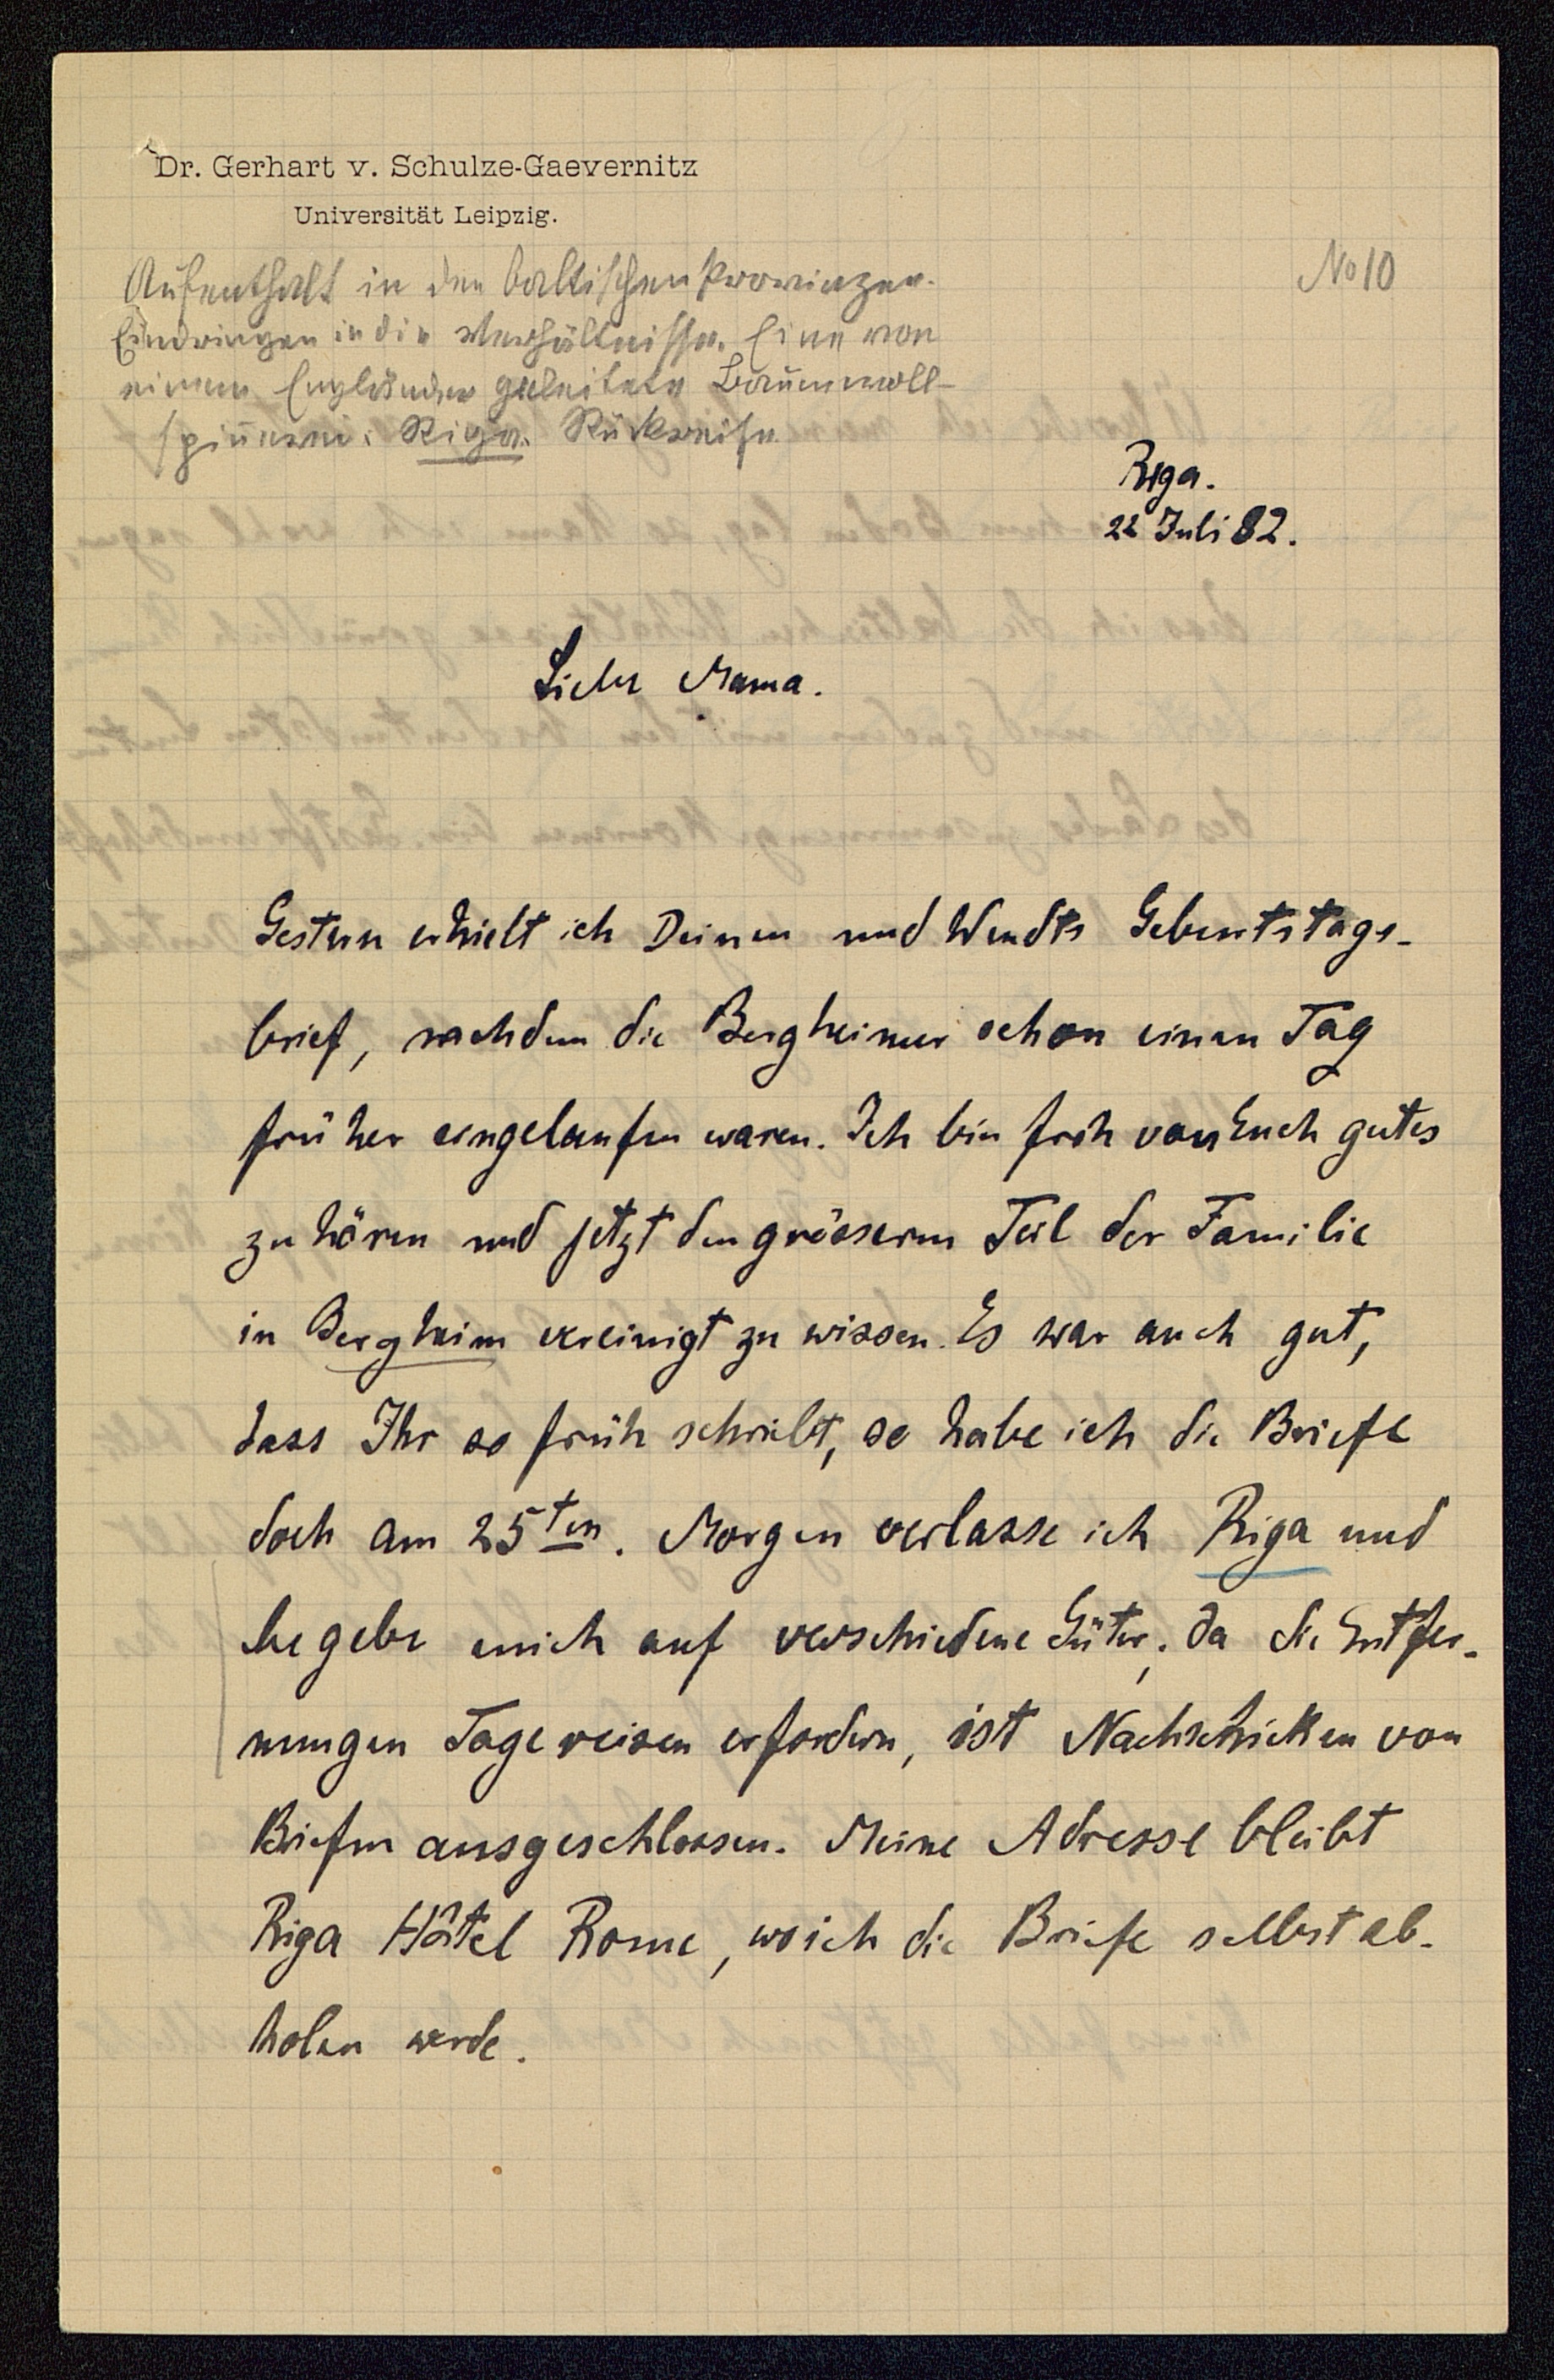 Dr. Gerhart v. Schulze-Gaevernitz
Universität Leipzig.
Aufenthalt in den baltischen Provinzen.
Eindringen in die Verhältnisse. Eine von
einem Engländer geleitete Baumwoll-
spinnerei. Riga. Rückreise
No 10
Riga.
22 Juli 92.
Liebe Mama.
Gestern erhielt ich Deinen und Wendts Geburtstags-
brief, nachdem die Bergheimer schon einen Tag
früher eingelaufen waren. Ich bin froh von Euch gutes
zu hören und jetzt den grösseren Teil der Familie
in Bergheim vereinigt zu wissen. Es war auch gut,
dass Ihr so früh schriebt, so habe ich die Briefe
doch am 25ten. Morgen verlasse ich Riga und
begebe mich auf verschiedene Güter; da die Entfer-
nungen Tagereisen erfordern, ist Nachschicken von
Briefen ausgeschlossen. Meine Adresse bleibt
Riga Hôtel Rome, wo ich die Briefe selbst ab-
holen werde.